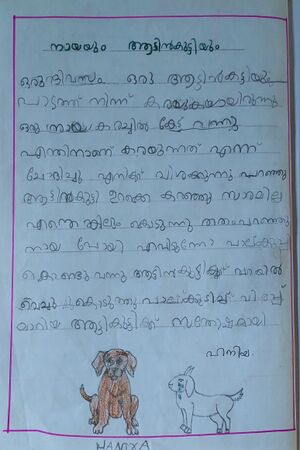 നായയും ആട്ടിൻകുട്ടിയും
ഒരു ദിവസം ഒരു ആട്ടിൻകുട്ടിയും
നിന്ന് കരയുകയായിരുന്നു
ഒരു നായ കരച്ചിൽ കേട്ട് വന്നു
എന്തിനാണ് കരയുന്നത് എന്ന്
ചോദിച്ചു എനിക്ക് വിശക്കുന്നു പറഞ്ഞു
ആട്ടിൻകുട്ടി ഉറക്കെ കരഞ്ഞു സാരമില്ല
എന്തെങ്കിലും
നായ പോയി എവിടുന്നോ പാല്ക്കുപ്പി
കൊണ്ടുവന്നു ആട്ടിൻകുട്ടിക്ക് വായിൽ
വെച്ചു കൊടുത്തു പാല്കുടിച്ച് വിശപ്പ്
മാറിയ ആട്ടികുട്ടിക്ക് സന്തോഷമായി
ഹനിയ.
HANIYA